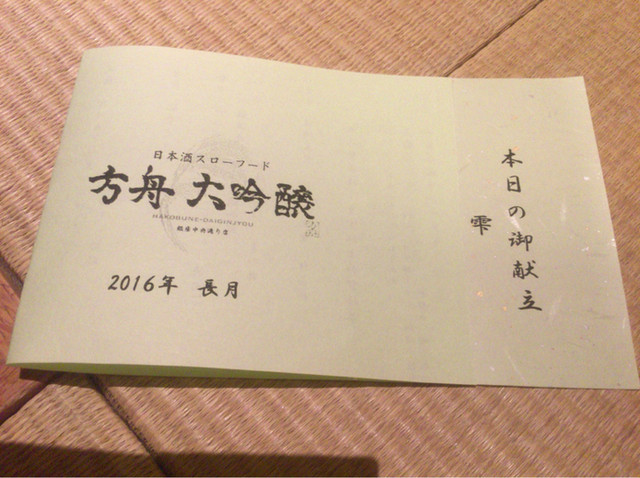 日本酒スローフード
方舟 大吟醸
HAKOBUNE-DAIGINJYOU
銀座中央通り店
2016年 長月
本日の御献立
雫